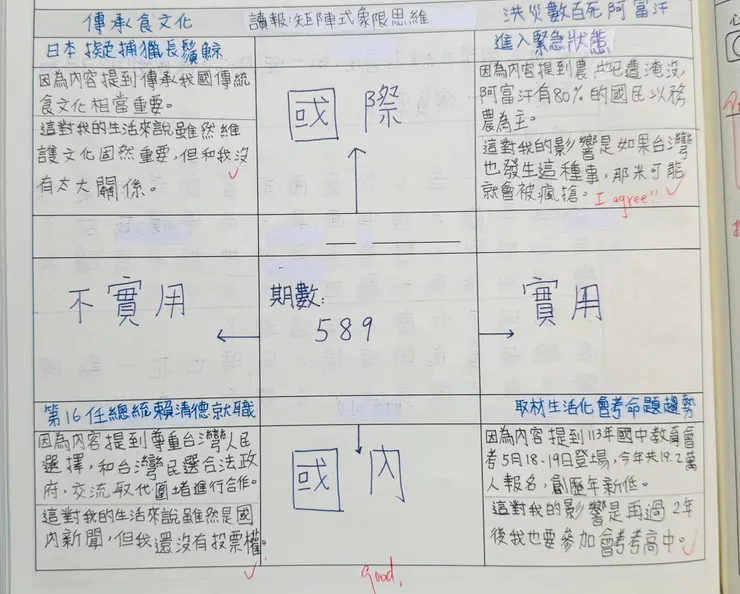 傳承食文化
讀報:矩陣式象限思維
洪災數百死阿富汗
日本擬捕獵長鬚鯨
進入緊急狀態
因為內容提到傳承我國傳統
食文化相當重要。
這對我的生活來說雖然維
護文化固然重要,但和我沒
有太大關係。
國際
因為內容提到農地遭淹沒,
阿富汗有80%的國民以務
農為主。
這對我的影響是如果台灣
也發生這種事,那米可能
就會被瘋搶。
I agree!!
不實用
期數:
589
實用
第16任總統賴清德就職
因為內容提到尊重台灣人民
選擇,和台灣民選合法政
府,交流取代圍堵進行合作。
這對我的生活來說雖然是國
內新聞,但我還沒有投票權。
國內
good.
取材生活化會考命題趨勢
因為內容提到113年國中教育會
考5月18、19日登場,今年共19.2萬
人報名,創歷年新低。
這對我的影響是再過2年
後我也要參加會考考高中。